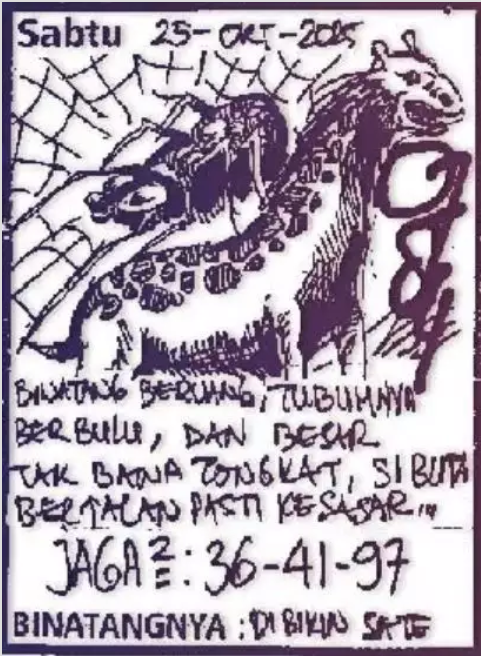 Sabtu 25-OKT-2025
084
BINATANG BERUANG, TUBUHNYA
BERBULU, DAN BESAR
TAK BAWA TONGKAT, SI BUTA
BERJALAN PASTI KESASAR...
JAGA²: 36-41-97
BINATANGNYA : DI BIKIN SATE